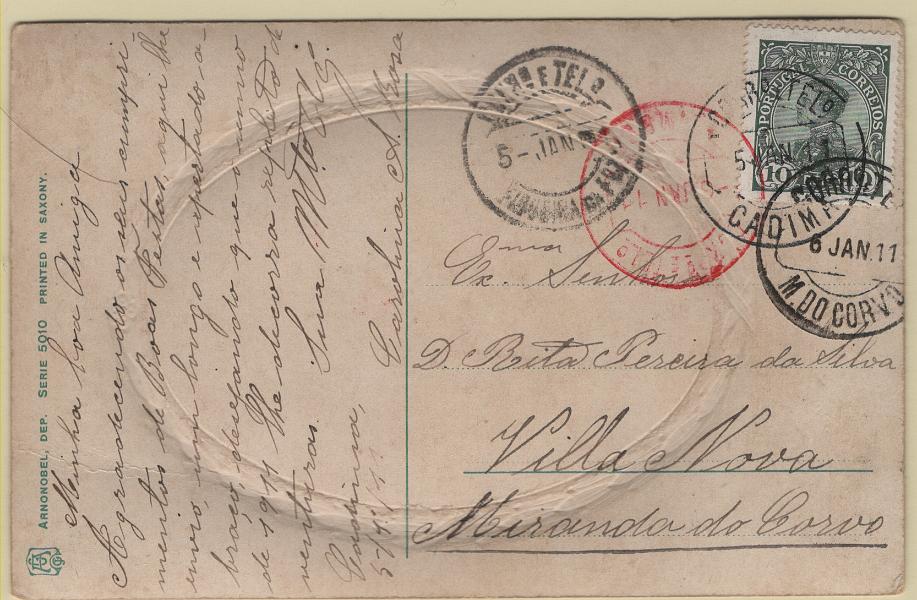 ARNONOBEL, DEP. SERIE 5010 PRINTED IN SAXONY.
Minha boa Amiga
Agradecendo os seus cumpri-
mentos de Boas Festas, aqui lhe
envio um longo e apertado a-
braço, desejando que o anno
de 1911 lhe decorra repleto de
venturas. Sua M.to
Cadima,
5-1-911
Carolina A. Rosa
CORREIO E TELO
5-JAN
FIGUEIRA DA FOZ
PORTUGAL CORREIOS
10
TELO
5 JAN 11
CADIMA
6 JAN.11
M. DO CORVO
Exma
Ex. Senhora
D. Rita Pereira da Silva
Villa Nova
Miranda do Corvo